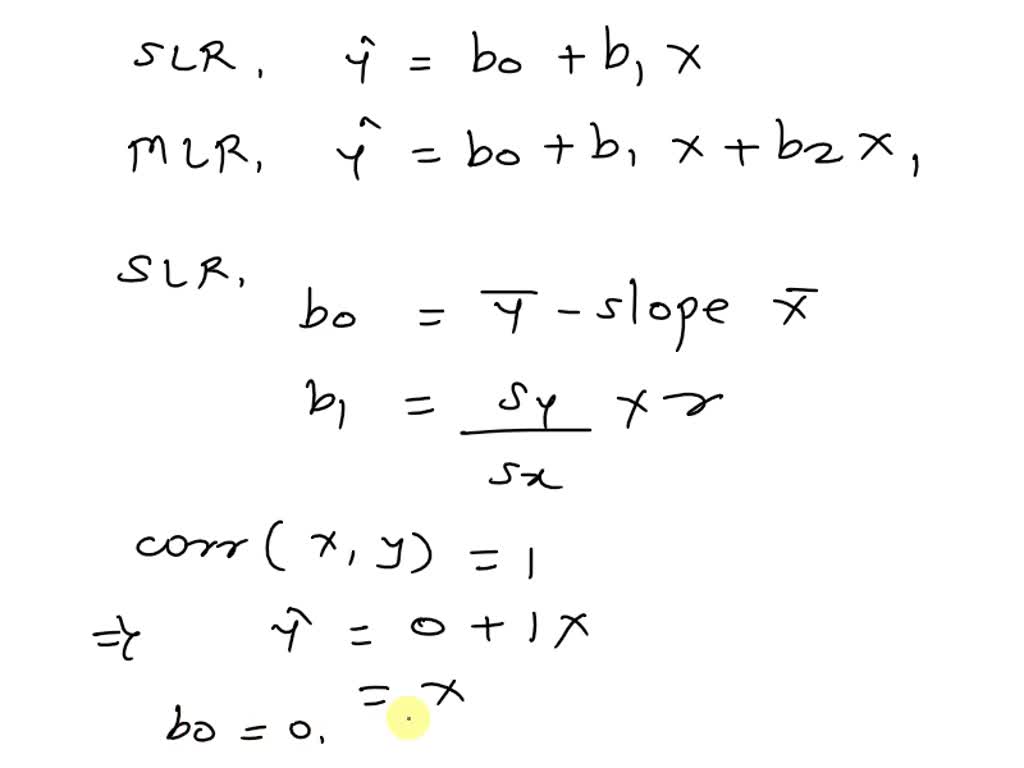 SLR, ŷ = b0 + b1 x
MLR, ŷ = b0 + b1 x + b2 x1
SLR,
b0 = ȳ - slope x̄
b1 = sy / sx × r
corr(x, y) = 1
⇒ ŷ = 0 + 1x
= x
b0 = 0.